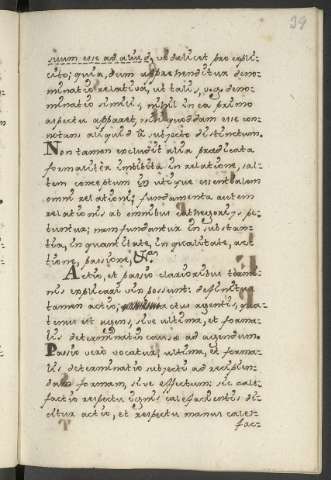 39
suum esse ad aliud, ut delicet pro expli-
cito; quia, dum apprehenditur deno-
minatio relativa, ut talis, v.g. deno-
minatio similis, nihil in ea primo
aspectu apparet, nisi quoddam esse con-
notans aliquid à subjecto distinctum.
Non tamen excludit alia praedicata
formaliter imbibita in relatione, sal-
tem conceptum entis utique essentialem
omni relationi; fundamenta autem
relationis ab omnibus cathegoriis pe-
tuntur; nam fundantur in substan-
tia, in quantitate, in qualitate, act-
ione, passione, &a.
Actio, et passio clarioribus termi-
nis explicari non possunt: definitur
tamen actio; actus agentis, qua-
tenus est agens, sive ultima, et forma-
lis determinatio causae ad agendum.
Passio vero vocatur; ultima, et forma-
lis determinatio subjecti ad recipien-
dam formam, sive effectum: sic cale-
factio respectu ignis calefacientis di-
citur actio, et respectu manus calef-
fac-